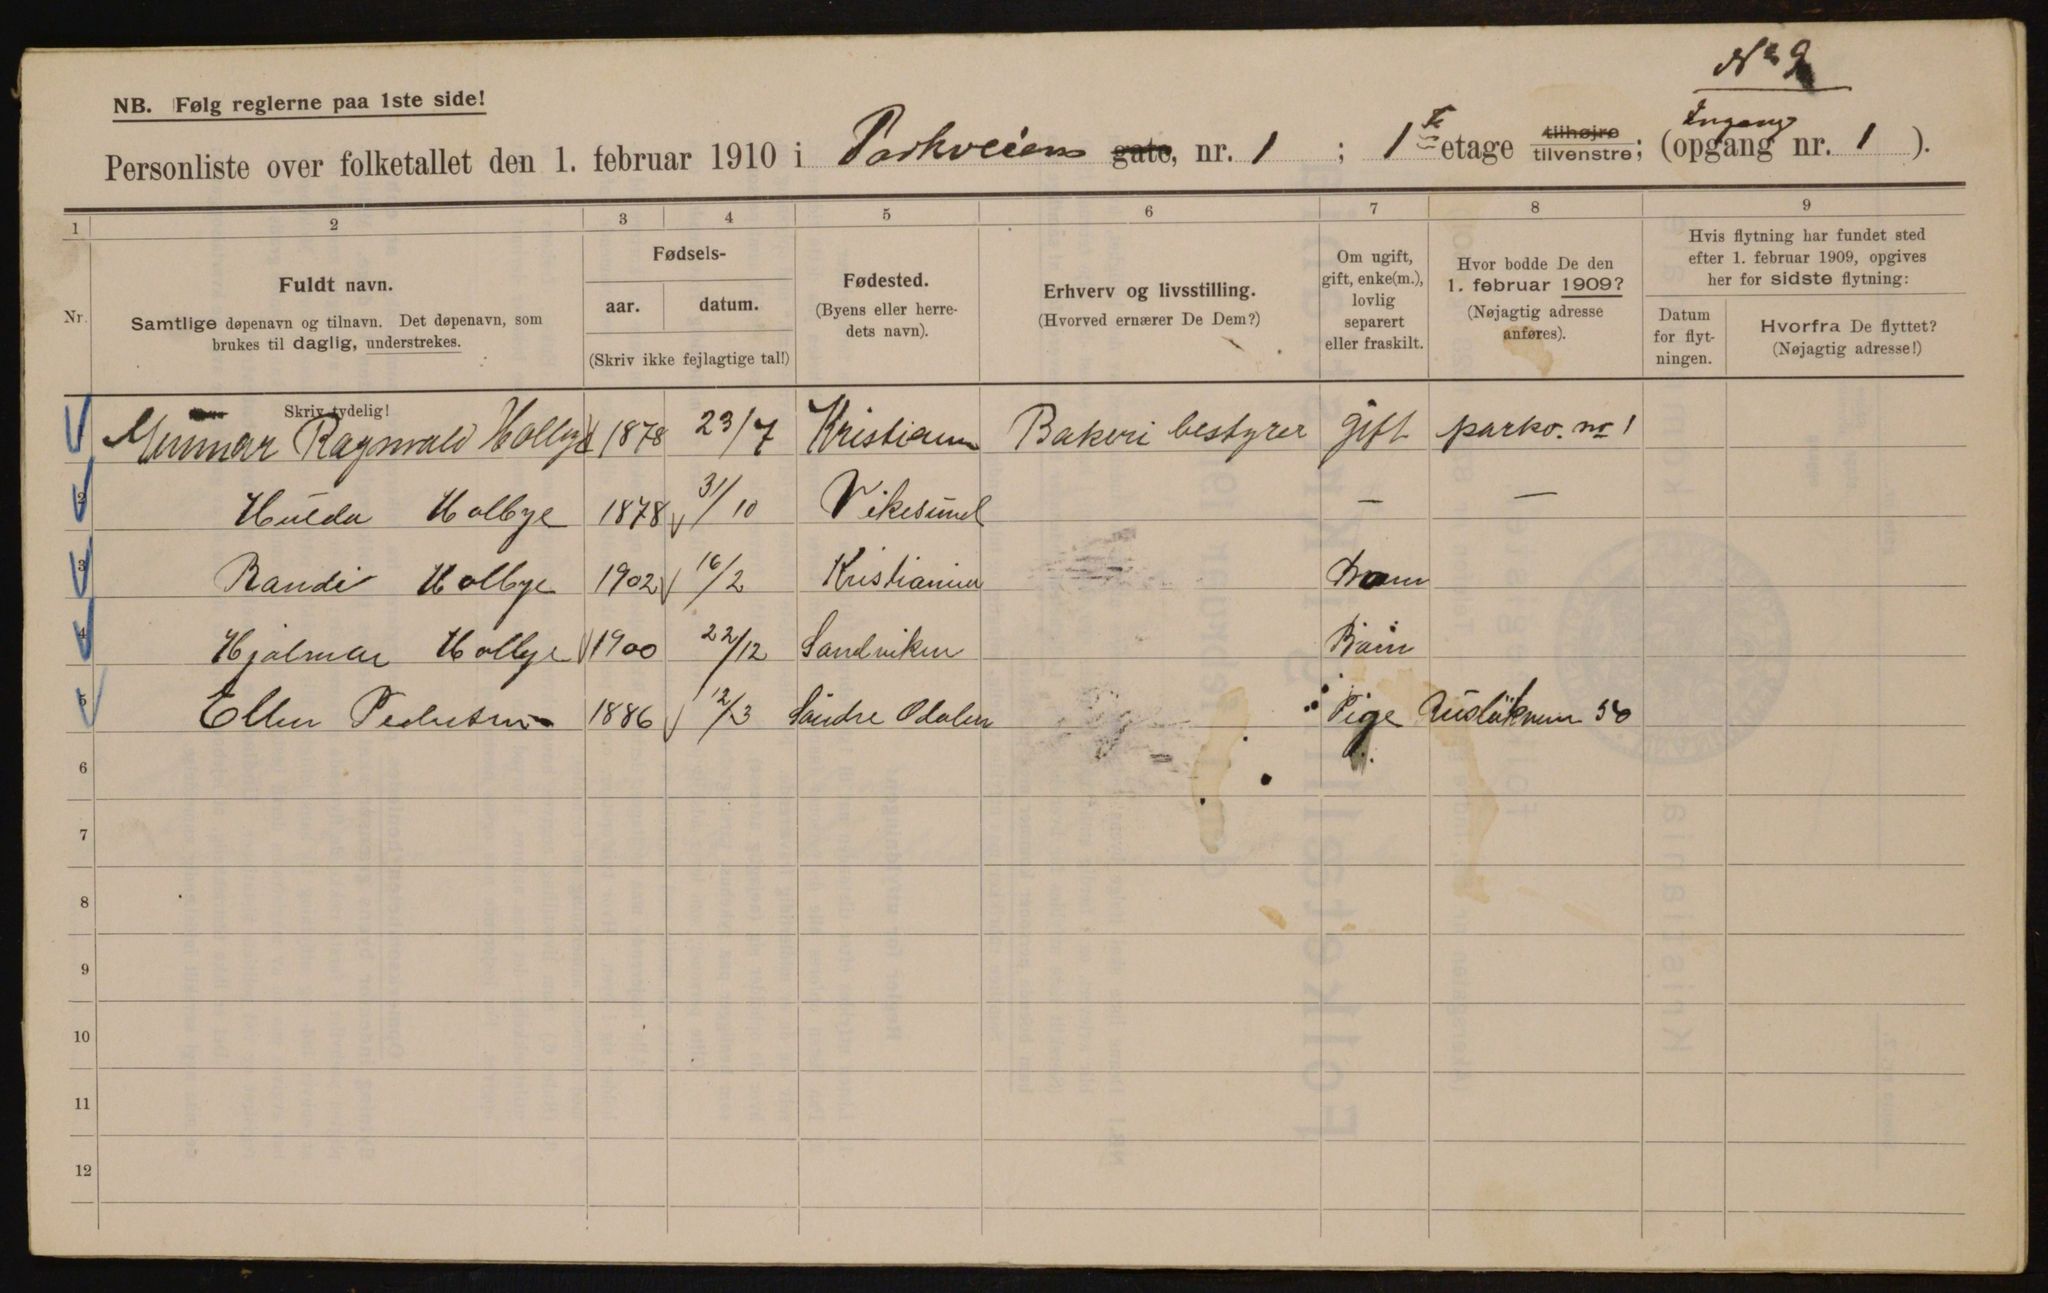 No 9
NB. Følg reglerne paa 1ste side!
Personliste over folketallet den 1. februar 1910 i Parkveien gate, nr. 1 ; 1ste etage tilhøjre tilvenstre; (opgang Ingang nr. 1 ).
1 2 3 4 5 6 7 8 9
Nr.
Fuldt navn.
Samtlige døpenavn og tilnavn. Det døpenavn, som
brukes til daglig, understrekes.
Fødsels-
aar. datum.
(Skriv ikke fejlagtige tal!)
Fødested.
(Byens eller herre-
dets navn).
Erhverv og livsstilling.
(Hvorved ernærer De Dem?)
Om ugift,
gift, enke(m.),
lovlig
separert
eller fraskilt.
Hvor bodde De den
1. februar 1909?
(Nøjagtig adresse
anføres).
Hvis flytning har fundet sted
efter 1. februar 1909, opgives
her for sidste flytning:
Datum
for flyt-
ningen.
Hvorfra De flyttet?
(Nøjagtig adresse!)
Skriv tydelig!
Ragnvald Holbye 1878 23/7 Kristiania Bakeri bestyrer gift parkv. no 1
2 Hulda Holbye 1878 31/10 Vikesund — —
3 Randi Holbye 1902 16/2 Kristiania Barn
4 Hjalmar Holbye 1900 22/12 Sandviken Barn
5 Ellen Pedersen 1886 12/3 Søndre Odalen Pige Ruseløkveien 50
6
7
8
9
10
11
12